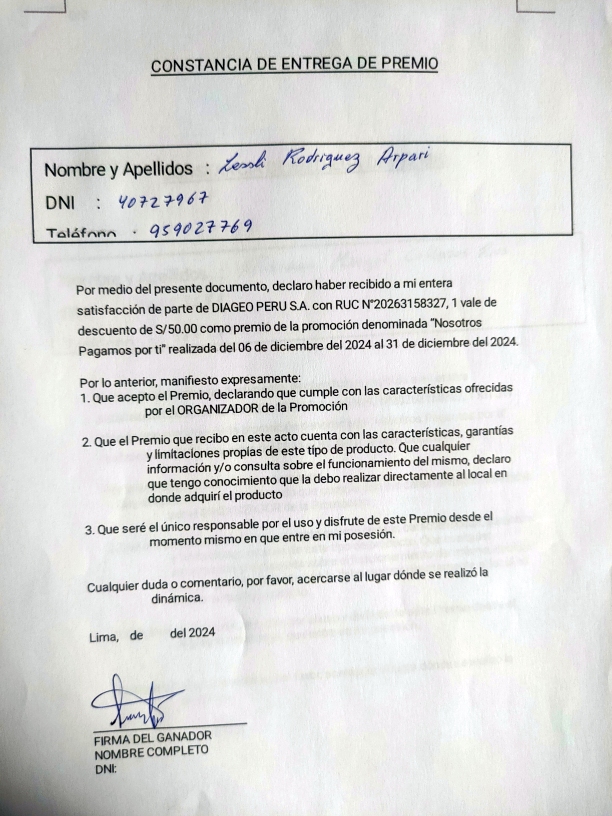 CONSTANCIA DE ENTREGA DE PREMIO
Nombre y Apellidos : Lessli Rodriguez Arpari
DNI : 40727967
Teléfono : 959027769
Por medio del presente documento, declaro haber recibido a mi entera
satisfacción de parte de DIAGEO PERU S.A. con RUC N°20263158327, 1 vale de
descuento de S/50.00 como premio de la promoción denominada "Nosotros
Pagamos por ti" realizada del 06 de diciembre del 2024 al 31 de diciembre del 2024.
Por lo anterior, manifiesto expresamente:
1. Que acepto el Premio, declarando que cumple con las características ofrecidas
por el ORGANIZADOR de la Promoción
2. Que el Premio que recibo en este acto cuenta con las características, garantías
y limitaciones propias de este tipo de producto. Que cualquier
información y/o consulta sobre el funcionamiento del mismo, declaro
que tengo conocimiento que la debo realizar directamente al local en
donde adquirí el producto
3. Que seré el único responsable por el uso y disfrute de este Premio desde el
momento mismo en que entre en mi posesión.
Cualquier duda o comentario, por favor, acercarse al lugar dónde se realizó la
dinámica.
Lima, de del 2024
FIRMA DEL GANADOR
NOMBRE COMPLETO
DNI: